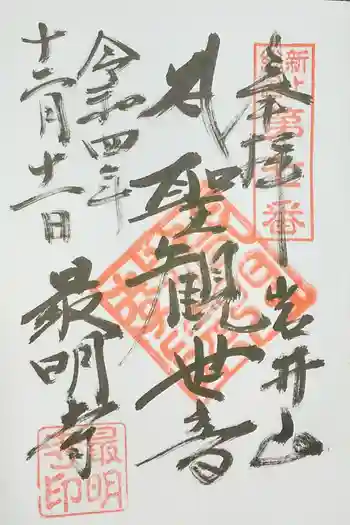 奉拝
岩井山
聖観世音
令和四年
十二月十一日
最明寺
最明寺印